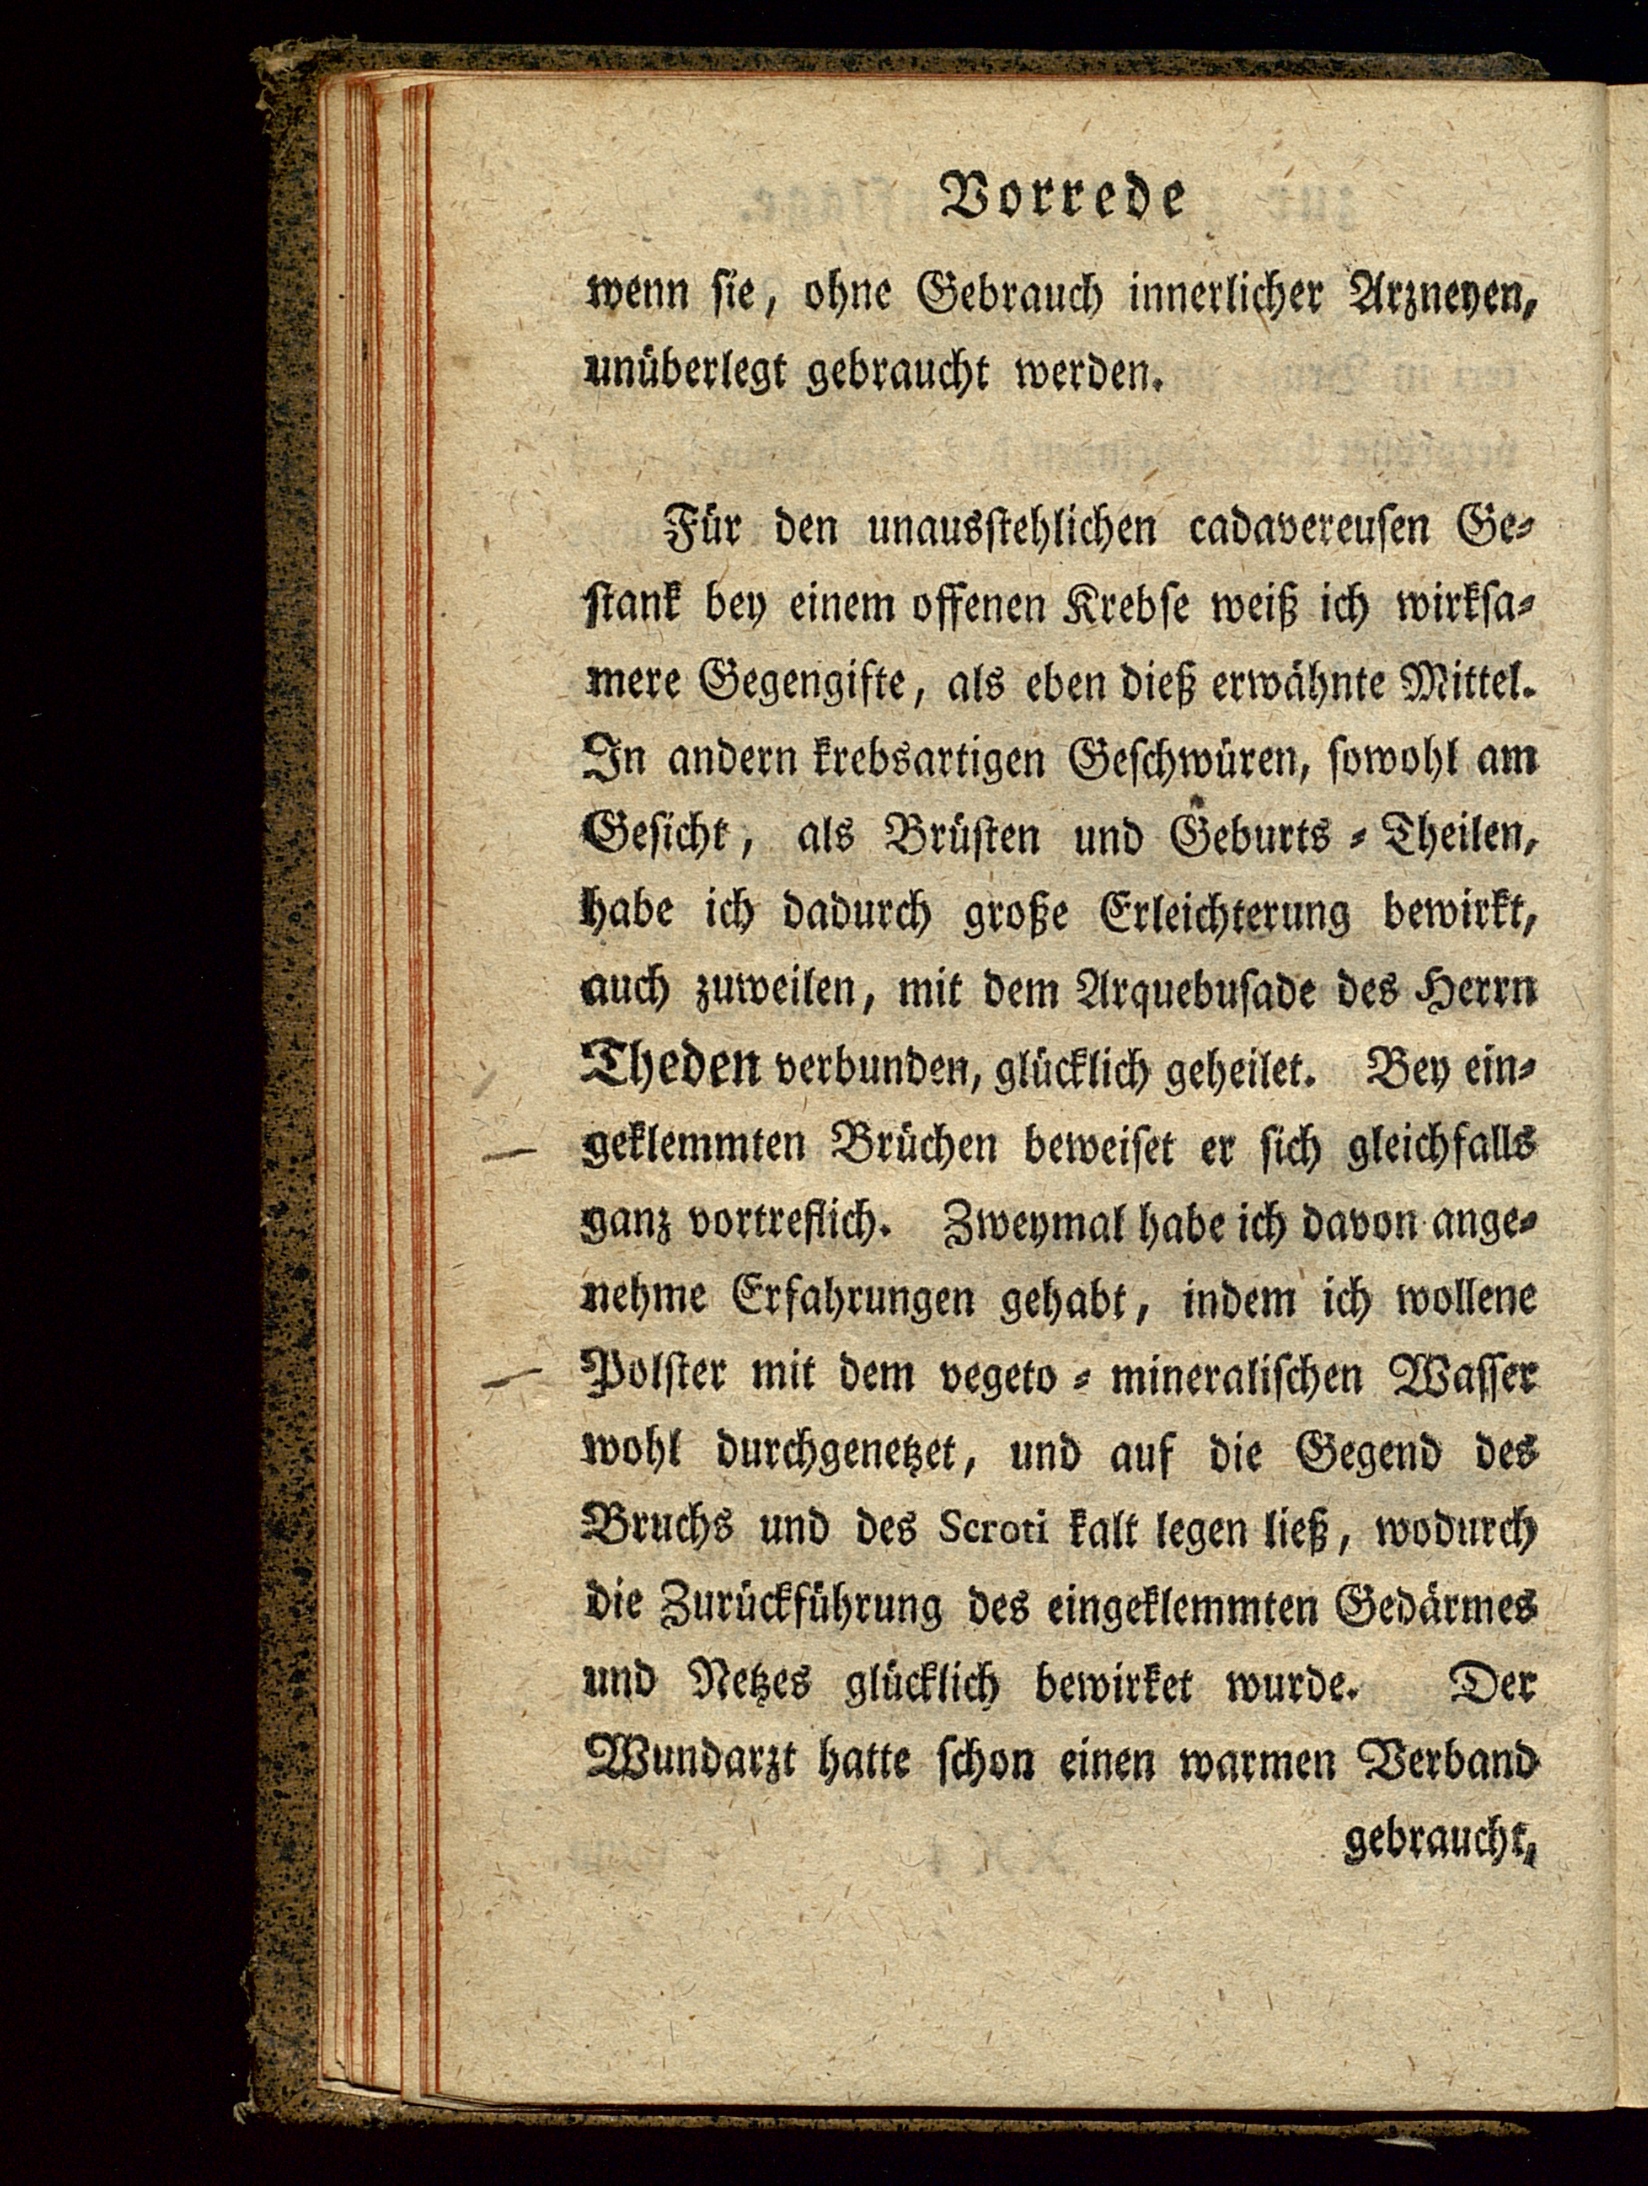 Vorrede
wenn ſie, ohne Gebrauch innerlicher Arzneyen,
unüberlegt gebraucht werden.
Für den unausſtehlichen cadavereuſen Ge⸗
ſtank bey einem offenen Krebſe weiß ich wirkſa⸗
mere Gegengifte, als eben dieß erwähnte Mittel.
In andern krebsartigen Geſchwüren, ſowohl am
Geſicht, als Brüſten und Geburts⸗Theilen,
habe ich dadurch große Erleichterung bewirkt,
auch zuweilen, mit dem Arquebuſade des Herrn
Theden verbunden, glücklich geheilet. Bey ein⸗
geklemmten Brüchen beweiſet er ſich gleichfalls
ganz vortreflich. Zweymal habe ich davon ange⸗
nehme Erfahrungen gehabt, indem ich wollene
Polſter mit dem vegeto⸗mineraliſchen Waſſer
wohl durchgenetzet, und auf die Gegend des
Bruchs und des Scroti kalt legen ließ, wodurch
die Zurückführung des eingeklemmten Gedärmes
und Netzes glücklich bewirket wurde. Der
Wundarzt hatte ſchon einen warmen Verband
gebraucht,